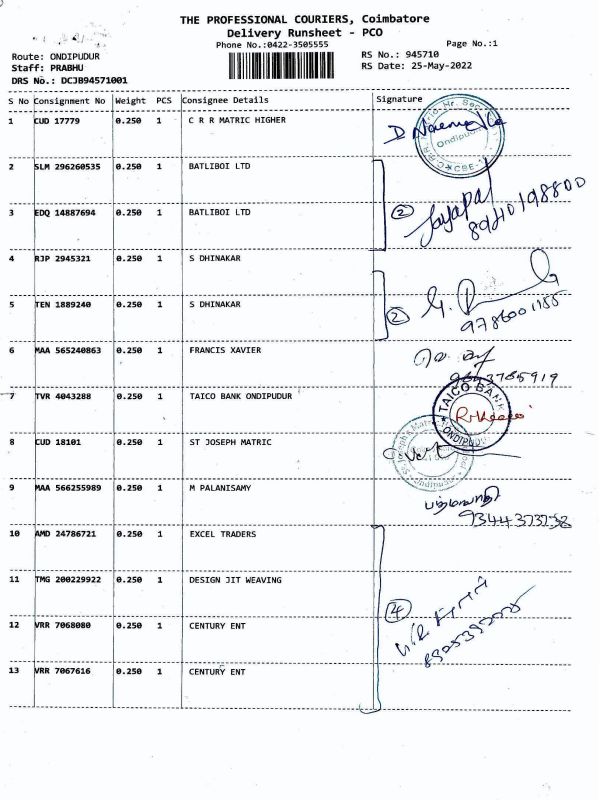 THE PROFESSIONAL COURIERS, Coimbatore
Delivery Runsheet - PCO
Phone No.:0422-3505555
Page No.:1
Route: ONDIPUDUR
RS No.: 945710
Staff: PRABHU
RS Date: 25-May-2022
DRS No.: DCJB94571001
S No Consignment No Weight PCS Consignee Details Signature
1 CUD 17779 0.250 1 C R R MATRIC HIGHER
2 SLM 296260535 0.250 1 BATLIBOI LTD
3 EDQ 14887694 0.250 1 BATLIBOI LTD
2 Jayapal
8940198800
4 RJP 2945321 0.250 1 S DHINAKAR
5 TEN 1889240 0.250 1 S DHINAKAR
2
9786001155
6 MAA 565240863 0.250 1 FRANCIS XAVIER
7 TVR 4043288 0.250 1 TAICO BANK ONDIPUDUR
TAICO BANK
ONDIPUDUR
8 CUD 18101 0.250 1 ST JOSEPH MATRIC
9 MAA 566255989 0.250 1 M PALANISAMY
9344373738
10 AMD 24786721 0.250 1 EXCEL TRADERS
11 TMG 200229922 0.250 1 DESIGN JIT WEAVING
4
12 VRR 7068080 0.250 1 CENTURY ENT
13 VRR 7067616 0.250 1 CENTURY ENT